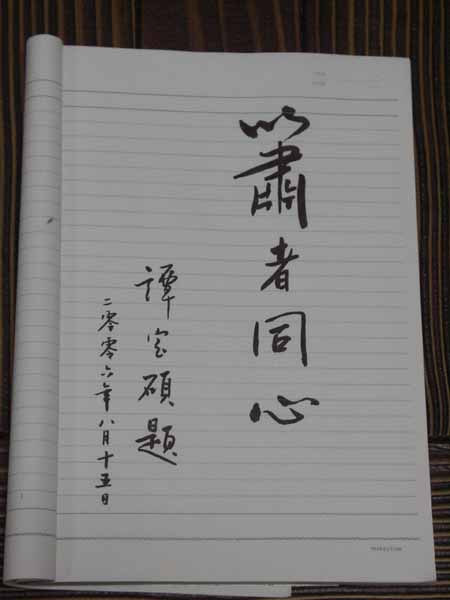 簫者同心
譚宝碩題
二零零六年八月十五日